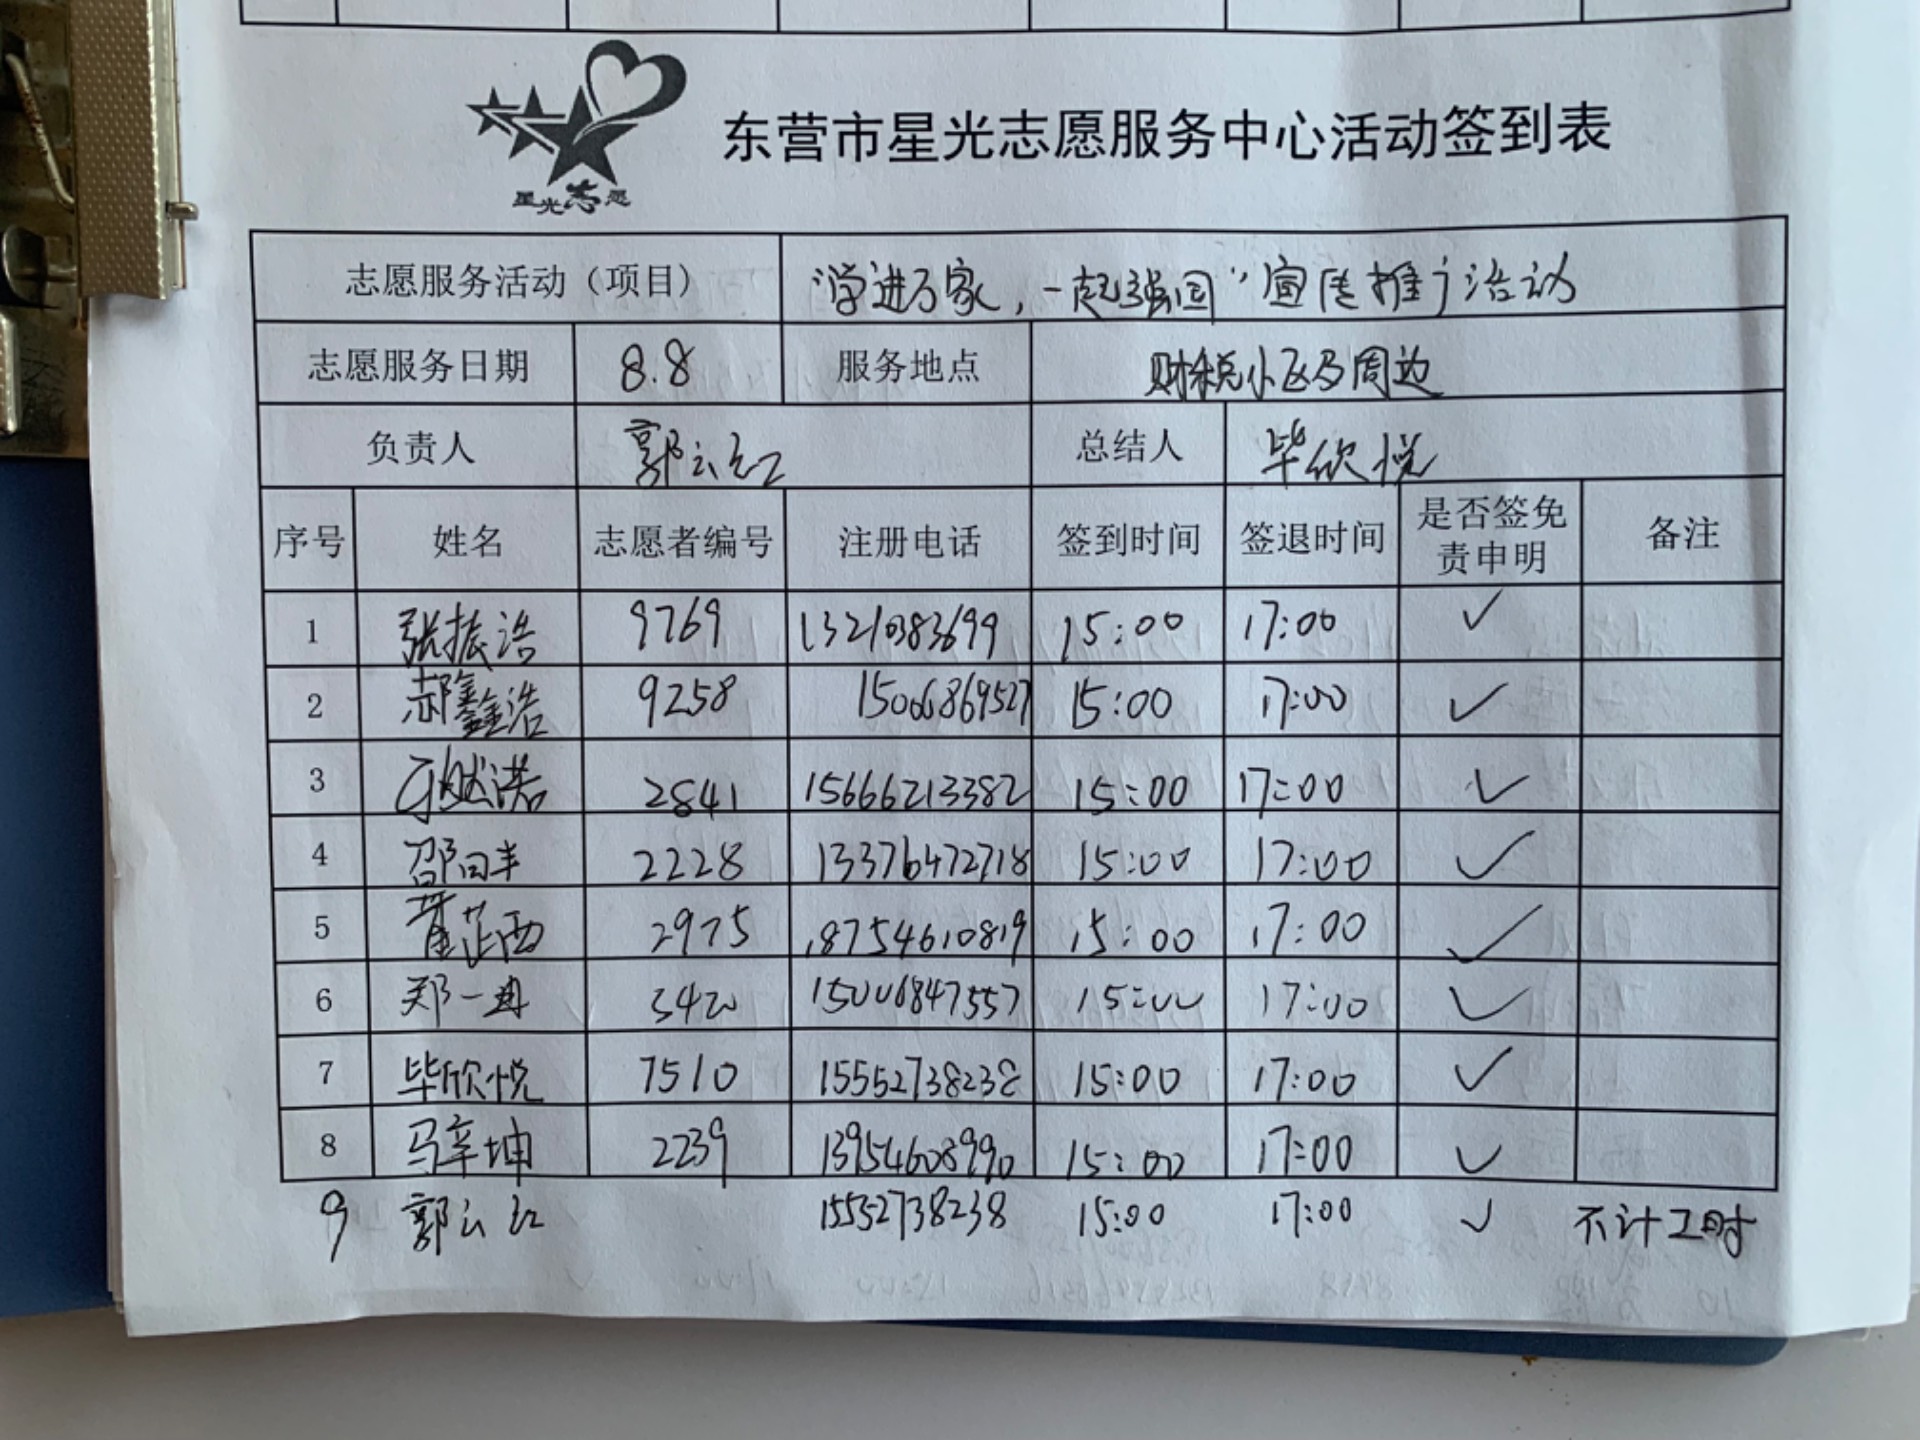 星光志愿
东营市星光志愿服务中心活动签到表
志愿服务活动（项目） “学进万家，一起强国”宣传推广活动
志愿服务日期 8.8 服务地点 财税小区及周边
负责人 郭云红 总结人 毕欣悦
序号 姓名 志愿者编号 注册电话 签到时间 签退时间 是否签免责申明 备注
1 张振浩 9769 13210383699 15:00 17:00 ✓
2 郝鑫浩 9258 15066869527 15:00 17:00 ✓
3 2841 15666213382 15:00 17:00 ✓
4 邵田丰 2228 13376472718 15:00 17:00 ✓
5 2975 18754610819 15:00 17:00 ✓
6 郑一冉 3420 15006847557 15:00 17:00 ✓
7 毕欣悦 7510 15552738238 15:00 17:00 ✓
8 马辛坤 2239 13954608990 15:00 17:00 ✓
9 郭云红 15552738238 15:00 17:00 ✓ 不计工时